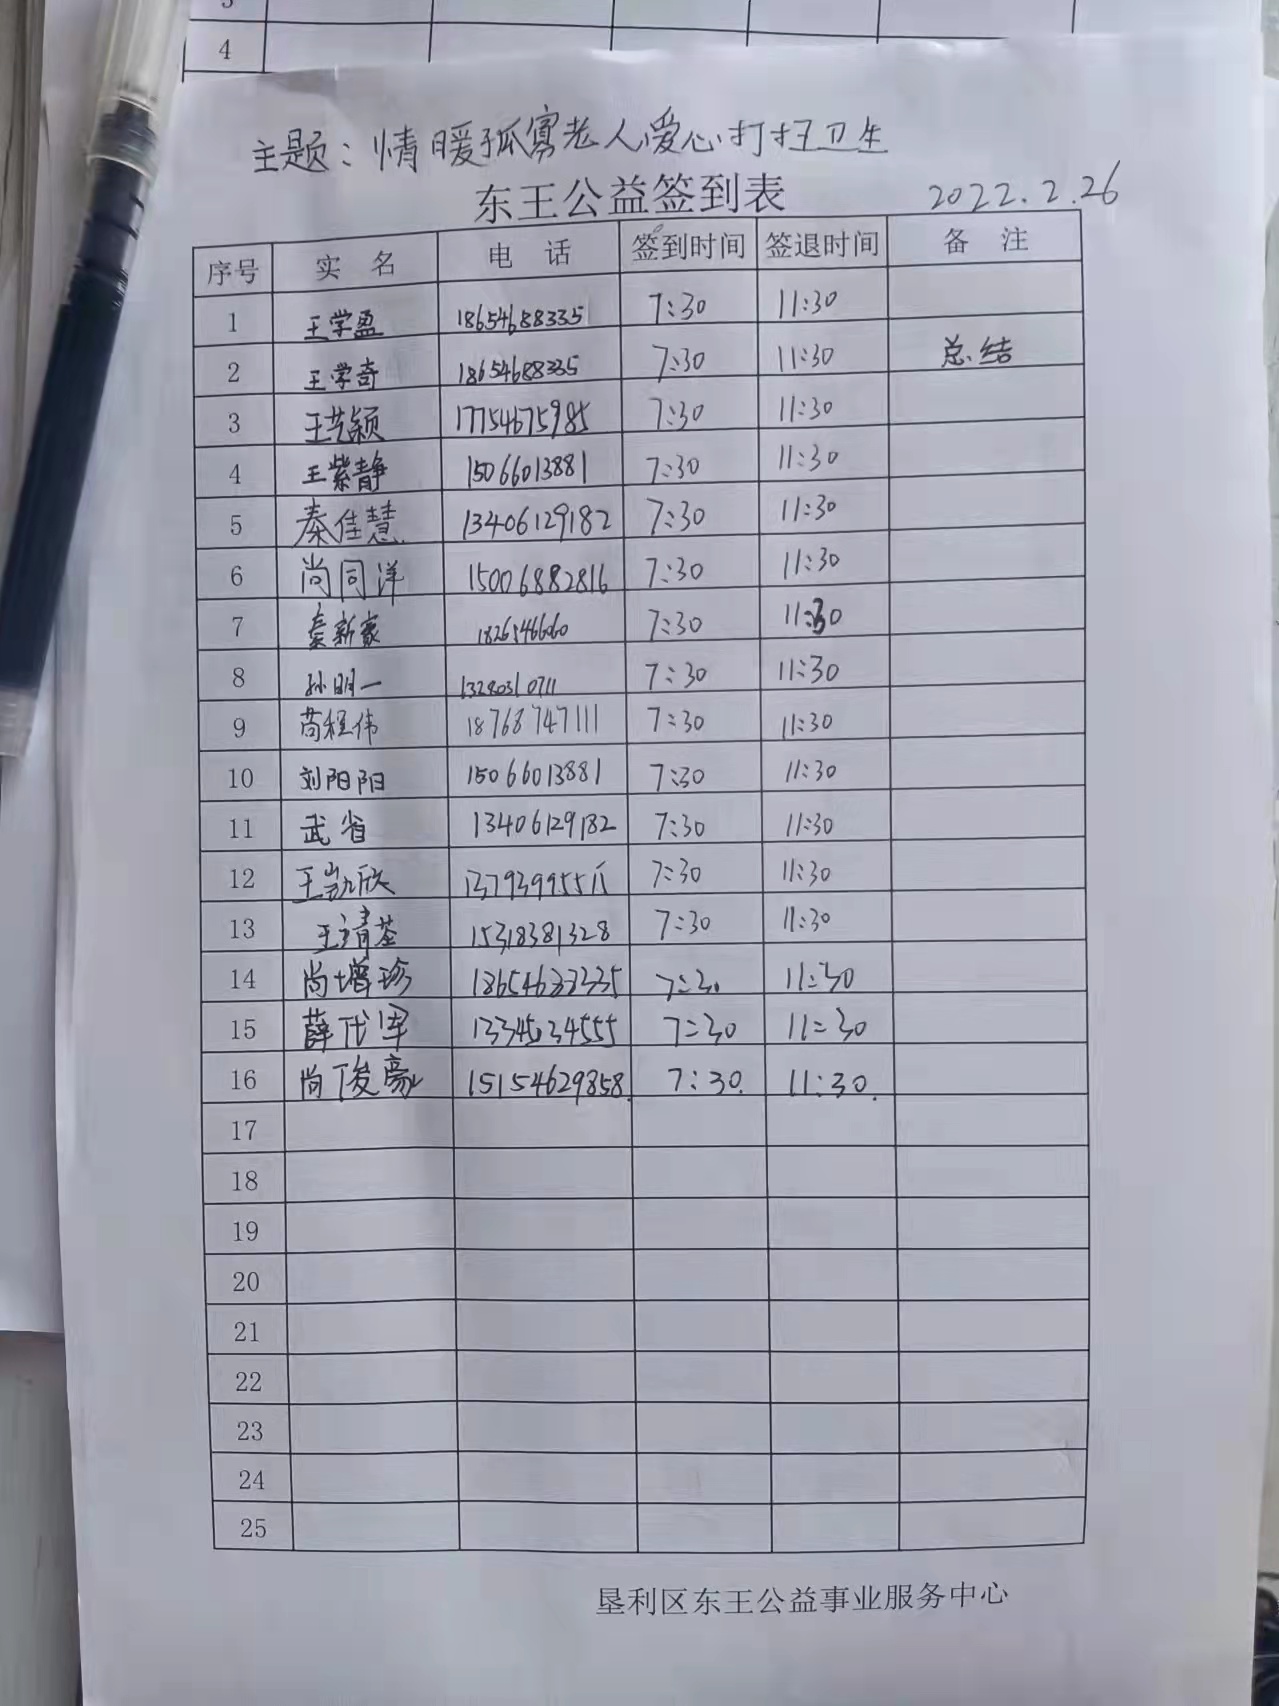 3
4
主题：情暖孤寡老人，爱心打扫卫生
东王公益签到表 2022.2.26
序号 实 名 电 话 签到时间 签退时间 备 注
1 王学盈 18654688335 7:30 11:30
2 王学奇 18654688335 7:30 11:30 总结
3 王艺颖 17754675985 7:30 11:30
4 王紫静 15066013881 7:30 11:30
5 秦佳慧 13406129182 7:30 11:30
6 尚同洋 15006882816 7:30 11:30
7 秦新豪 1826546660 7:30 11:30
8 孙明一 13280310711 7:30 11:30
9 苟程伟 18768747111 7:30 11:30
10 刘阳阳 15066013881 7:30 11:30
11 武省 13406129182 7:30 11:30
12 王凯欣 7:30 11:30
13 王靖荃 15318381328 7:30 11:30
14 尚增珍 18654633335 7:30 11:30
15 薛代军 13345034555 7:30 11:30
16 尚俊豪 15154629858. 7:30. 11:30.
17
18
19
20
21
22
23
24
25
垦利区东王公益事业服务中心